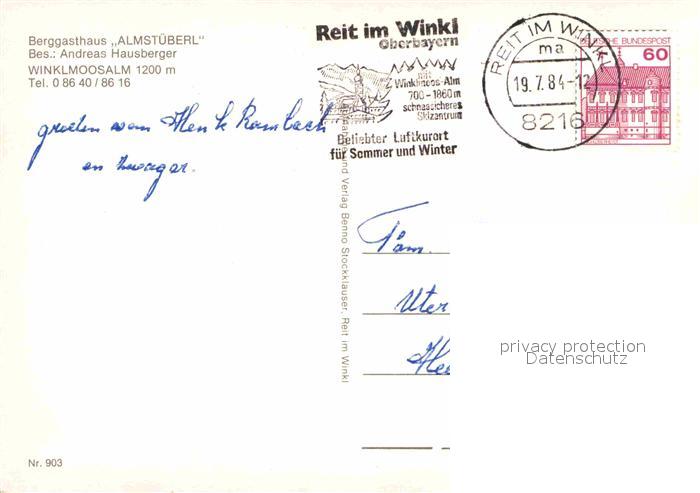 Berggasthaus „ALMSTÜBERL"
Bes.: Andreas Hausberger
WINKLMOOSALM 1200 m
Tel. 0 86 40 / 86 16
Reit im Winkl
Oberbayern
mit
Winklmoos-Alm
700 - 1860 m
schneesicheres
Skizentrum
Beliebter Luftkurort
für Sommer und Winter
REIT IM WINKL
ma
19.7.84-12
8216
DEUTSCHE BUNDESPOST
60
groeten van Henk Rambach
en zwager.
Verlag Benno Stockklauser, Reit im Winkl
Fam.
Uter
Hee
privacy protection
Datenschutz
Nr. 903